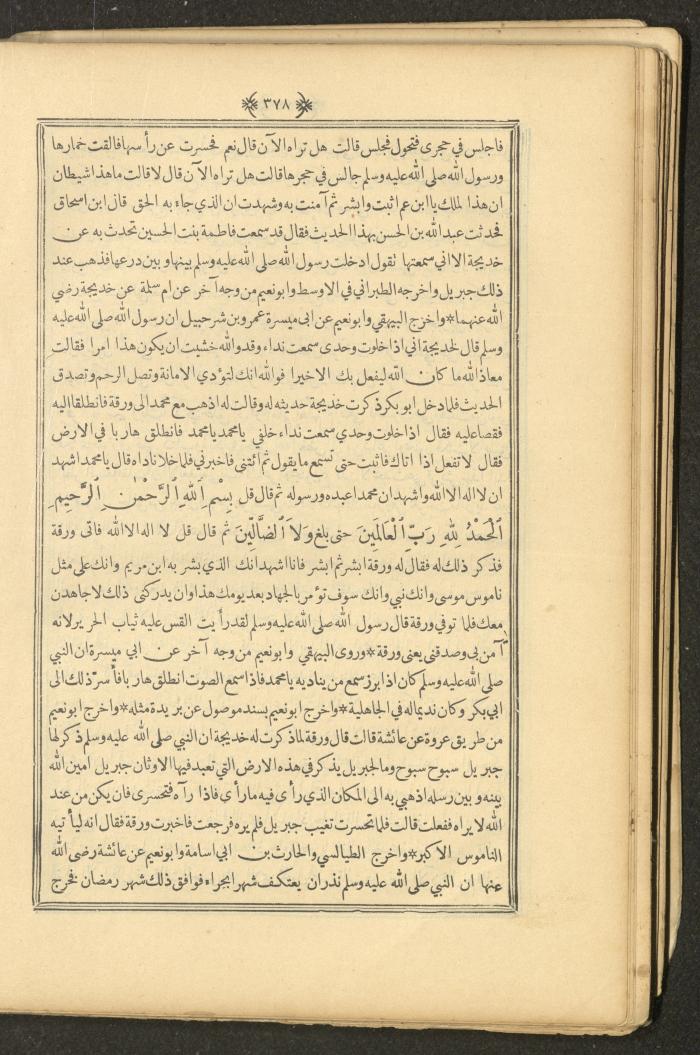 ﴿٣٧٨﴾
فاجلس في حجرى فتحول فجلس قالت هل تراه الآن قال نعم فحسرت عن رأسها فالقت خمارها
ورسول الله صلى الله عليه وسلم جالس في حجرها قالت هل تراه الآن قال لا قالت ما هذا شيطان
ان هذا لملك يا ابن عم اثبت وابشر ثم آمنت به وشهدت ان الذي جاء به الحق قال ابن اسحاق
فحدثت عبد الله بن الحسن بهذا الحديث فقال قد سمعت فاطمة بنت الحسين تحدث به عن
خديجة الا اني سمعتها تقول ادخلت رسول الله صلى الله عليه وسلم بينها وبين درعها فذهب عند
ذلك جبريل واخرجه الطبراني في الاوسط وابو نعيم من وجه آخر عن ام سلمة عن خديجة رضي
الله عنهما * واخرج البيهقي وابو نعيم عن ابى ميسرة عمرو بن شرحبيل ان رسول الله صلى الله عليه
وسلم قال لخديجة اني اذا خلوت وحدى سمعت نداء وقد والله خشيت ان يكون هذا امرا فقالت
معاذ الله ما كان الله ليفعل بك الا خيرا فوالله انك لتؤدي الامانة وتصل الرحم وتصدق
الحديث فلما دخل ابو بكر ذكرت خديجة حديثه له وقالت له اذهب مع محمد الى ورقة فانطلقا اليه
فقصا عليه فقال اذا خلوت وحدي سمعت نداء خلفي يا محمد يا محمد فانطلق هاربا في الارض
فقال لا تفعل اذا اتاك فاثبت حتى تسمع ما يقول ثم ائتنى فاخبرني فلما خلا ناداه قال يا محمد اشهد
ان لا اله الا الله واشهد ان محمدا عبده ورسوله ثم قال قل بِسْمِ اللهِ الرَّحْمٰنِ الرَّحِيمِ
اَلْحَمْدُ لِلهِ رَبِّ الْعَالَمِينَ حتى بلغ وَلَا الضَّالِّينَ ثم قال قل لا اله الا الله فاتى ورقة
فذكر ذلك له فقال له ورقة ابشر ثم ابشر فانا اشهد انك الذي بشر به ابن مريم وانك على مثل
ناموس موسى وانك نبي وانك سوف تؤمر بالجهاد بعد يومك هذا وان يدركنى ذلك لاجاهدن
معك فلما توفي ورقة قال رسول الله صلى الله عليه وسلم لقد رأيت القس عليه ثياب الحرير لانه
آمن بى وصدقنى يعنى ورقة * وروى البيهقي وابو نعيم من وجه آخر عن ابي ميسرة ان النبي
صلى الله عليه وسلم كان اذا برز سمع من يناديه يا محمد فاذا سمع الصوت انطلق هاربا فأسرّ ذلك الى
ابي بكر وكان نديما له في الجاهلية * واخرج ابو نعيم بسند موصول عن بريدة مثله * واخرج ابو نعيم
من طريق عروة عن عائشة قالت قال ورقة لما ذكرت له خديجة ان النبي صلى الله عليه وسلم ذكر لها
جبريل سبوح سبوح وما لجبريل يذكر في هذه الارض التي تعبد فيها الاوثان جبريل امين الله
بينه وبين رسله اذهبي به الى المكان الذي رأى فيه ما رأى فاذا رآه فتحسرى فان يكن من عند
الله لا يراه ففعلت قالت فلما تحسرت تغيب جبريل فلم يره فرجعت فاخبرت ورقة فقال انه ليأتيه
الناموس الاكبر * واخرج الطيالسي والحارث بن ابي اسامة وابو نعيم عن عائشة رضى الله
عنها ان النبي صلى الله عليه وسلم نذر ان يعتكف شهرا بحراء فوافق ذلك شهر رمضان فخرج